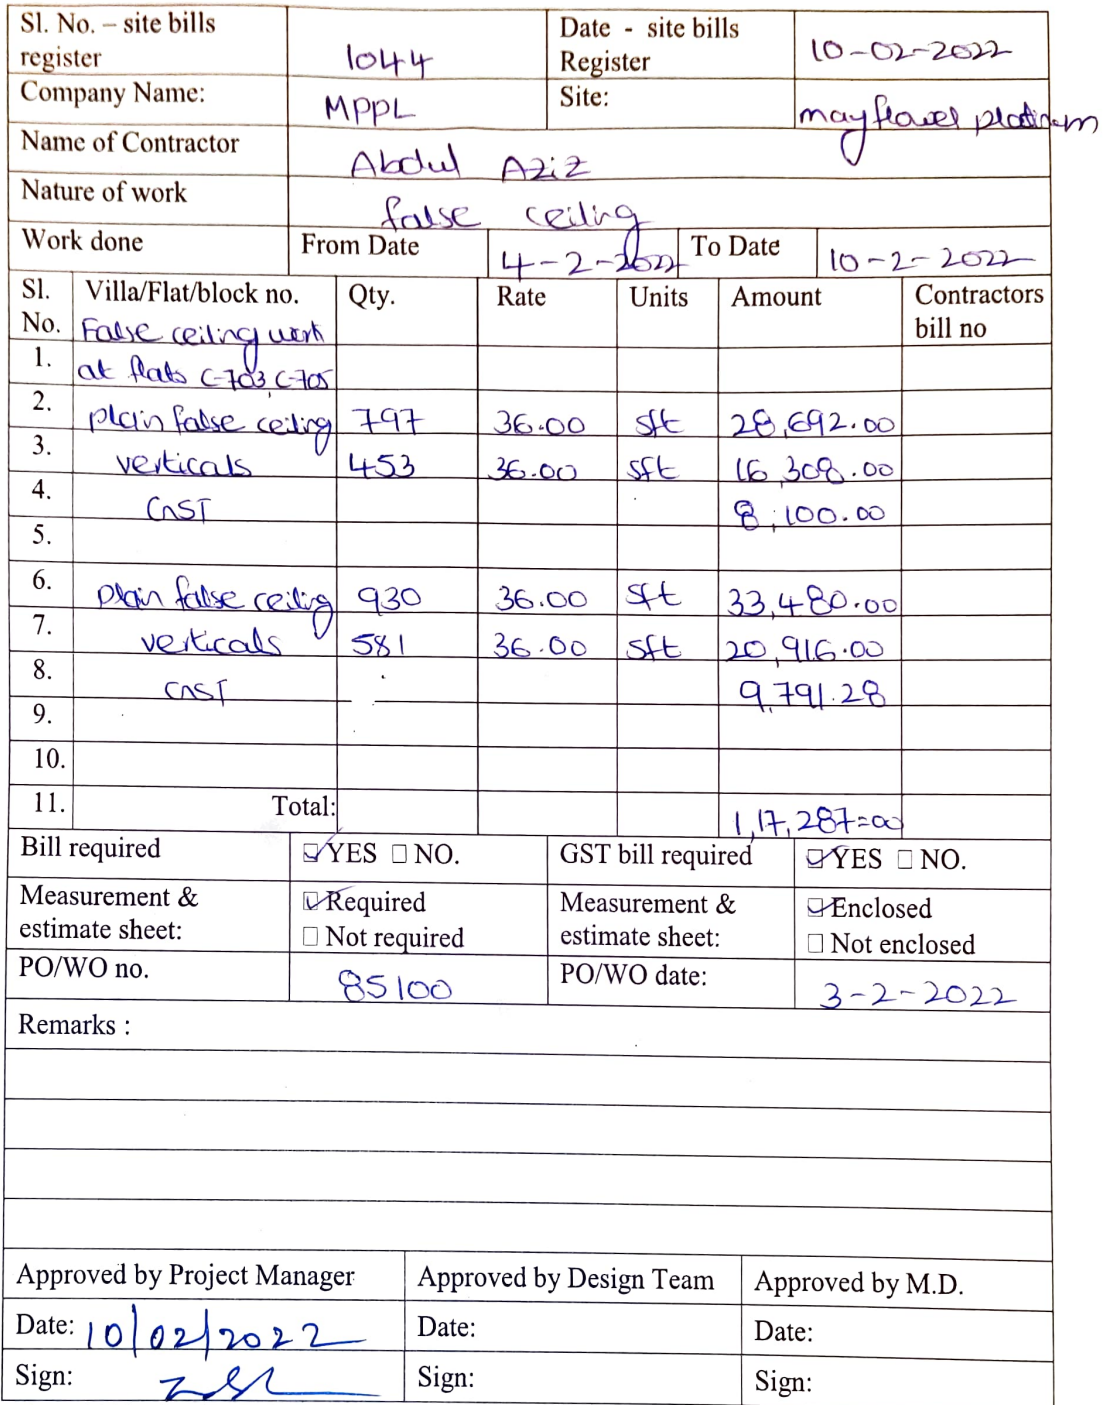 Sl. No. – site bills register 1044 Date - site bills Register 10-02-2022
Company Name: MPPL Site: mayflower platinum
Name of Contractor Abdul Aziz
Nature of work false ceiling
Work done From Date 4-2-2022 To Date 10-2-2022
Sl. No. Villa/Flat/block no. Qty. Rate Units Amount Contractors bill no
False ceiling work
1. at flats C-703, C-705
2. plain false ceiling 797 36.00 sft 28,692.00
3. verticals 453 36.00 sft 16,308.00
4. GST 8,100.00
5.
6. plain false ceiling 930 36.00 sft 33,480.00
7. verticals 581 36.00 sft 20,916.00
8. GST 9,791.28
9.
10.
11. Total: 1,17,287=00
Bill required ☑ YES ☐ NO. GST bill required ☑ YES ☐ NO.
Measurement & estimate sheet: ☑ Required ☐ Not required Measurement & estimate sheet: ☑ Enclosed ☐ Not enclosed
PO/WO no. 85100 PO/WO date: 3-2-2022
Remarks :
Approved by Project Manager Approved by Design Team Approved by M.D.
Date: 10/02/2022 Date: Date:
Sign: Sign: Sign: